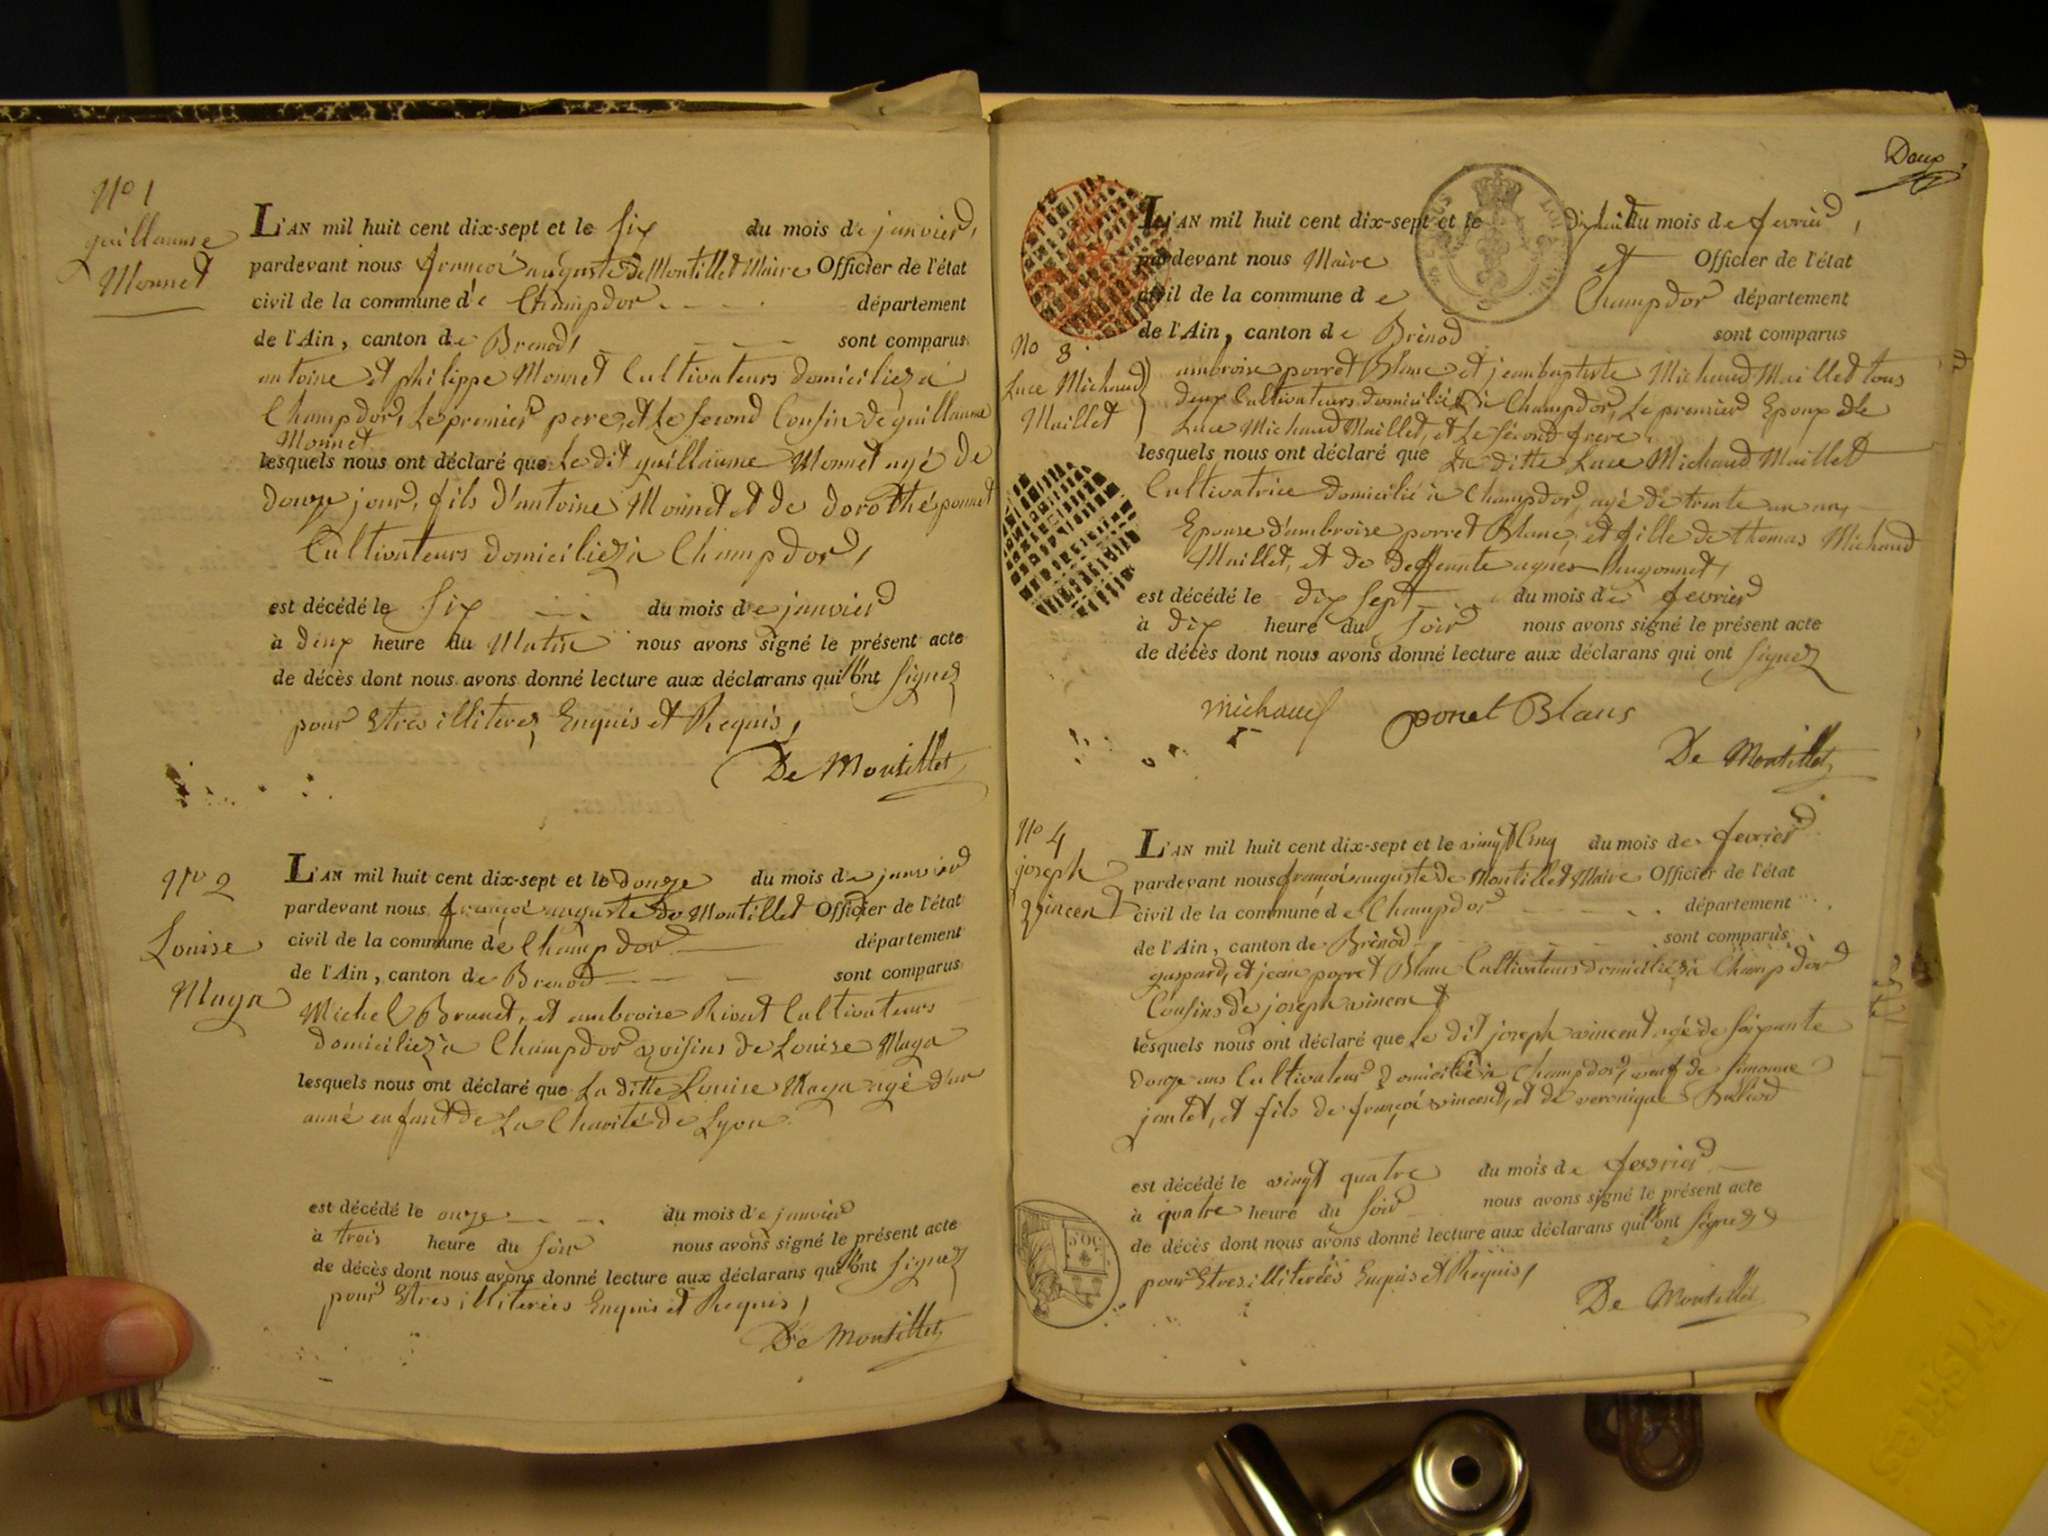 No 1
guillaume
Monnet
L'AN mil huit cent dix-sept et le six du mois de janvier,
pardevant nous françoi auguste de Montillet Maire Officier de l'état
civil de la commune de Champdor département
de l'Ain, canton de Brenod, sont comparus
antoine et philippe Monnet Cultivateurs domiciliez à
Champdor, Le premier pere, et Le second Cousin de guillaume
Monnet
lesquels nous ont déclaré que Le dit guillaume Monnet agé de
douze jour, fils d'antoine Monnet et de dorothé
Cultivateurs domiciliez à Champdor,
est décédé le six du mois de janvier
à deux heure du Matin nous avons signé le présent acte
de décès dont nous avons donné lecture aux déclarans qui n'ont signez
pour Etres illiterez Enquis et Requis,
De Montillet
No 2
Louise
Maya
L'AN mil huit cent dix-sept et le douze du mois de janvier
pardevant nous françoi auguste de Montillet Officier de l'état
civil de la commune de Champdor département
de l'Ain, canton de Brenod sont comparus
Michel Brunet, et ambroise Rivat Cultivateurs
domiciliez à Champdor voisins de Louise Maya
lesquels nous ont déclaré que La ditte Louise Maya agé d'un
anné enfant de La Charité de Lyon
est décédé le onze du mois de janvier
à trois heure du soir nous avons signé le présent acte
de décès dont nous avons donné lecture aux déclarans qui n'ont signez
pour Etres illiterées Enquis et Requis,
De Montillet
Deux
L'AN mil huit cent dix-sept et le dixhuit du mois de fevrier,
pardevant nous Maire et Officier de l'état
civil de la commune de Champdor département
de l'Ain, canton de Brénod sont comparus
No 3
Luce Michaud
Maillet
ambroise porret Blanc et jeanbaptiste Michaud Maillet tous
deux Cultivateurs domiciliés à Champdor, Le premier Epoux de
Luce Michaud Maillet, et Le second frere
lesquels nous ont déclaré que La ditte Luce Michaud Maillet
Cultivatrice domicilié à Champdor, agé de trente un an,
Epouse d'ambroise porret Blanc, et fille de thomas Michaud
Maillet, et de deffeunte agnes hugonnet,
est décédé le dix sept du mois de fevrier
à dix heure du soir nous avons signé le présent acte
de décès dont nous avons donné lecture aux déclarans qui ont signez
Michaud poret Blanc
De Montillet
No 4
joseph
vincent
L'AN mil huit cent dix-sept et le vingt Cinq du mois de fevrier
pardevant nous françoi auguste de Montillet Maire Officier de l'état
civil de la commune de Champdor département
de l'Ain, canton de Brénod sont comparus
gaspard, et jean porret Blanc Cultivateurs domiciliéz à Champdor
Cousins de joseph vincent
lesquels nous ont déclaré que Le dit joseph vincent agé de soixante
douze ans Cultivateur domicilié à Champdor, veuf de simonne
jantet, et fils de françoi vincent, et de veronique
est décédé le vingt quatre du mois de fevrier
à quatre heure du soir nous avons signé le présent acte
de décès dont nous avons donné lecture aux déclarans qui n'ont signez
pour Etres illiterées Enquis et Requis,
De Montillet